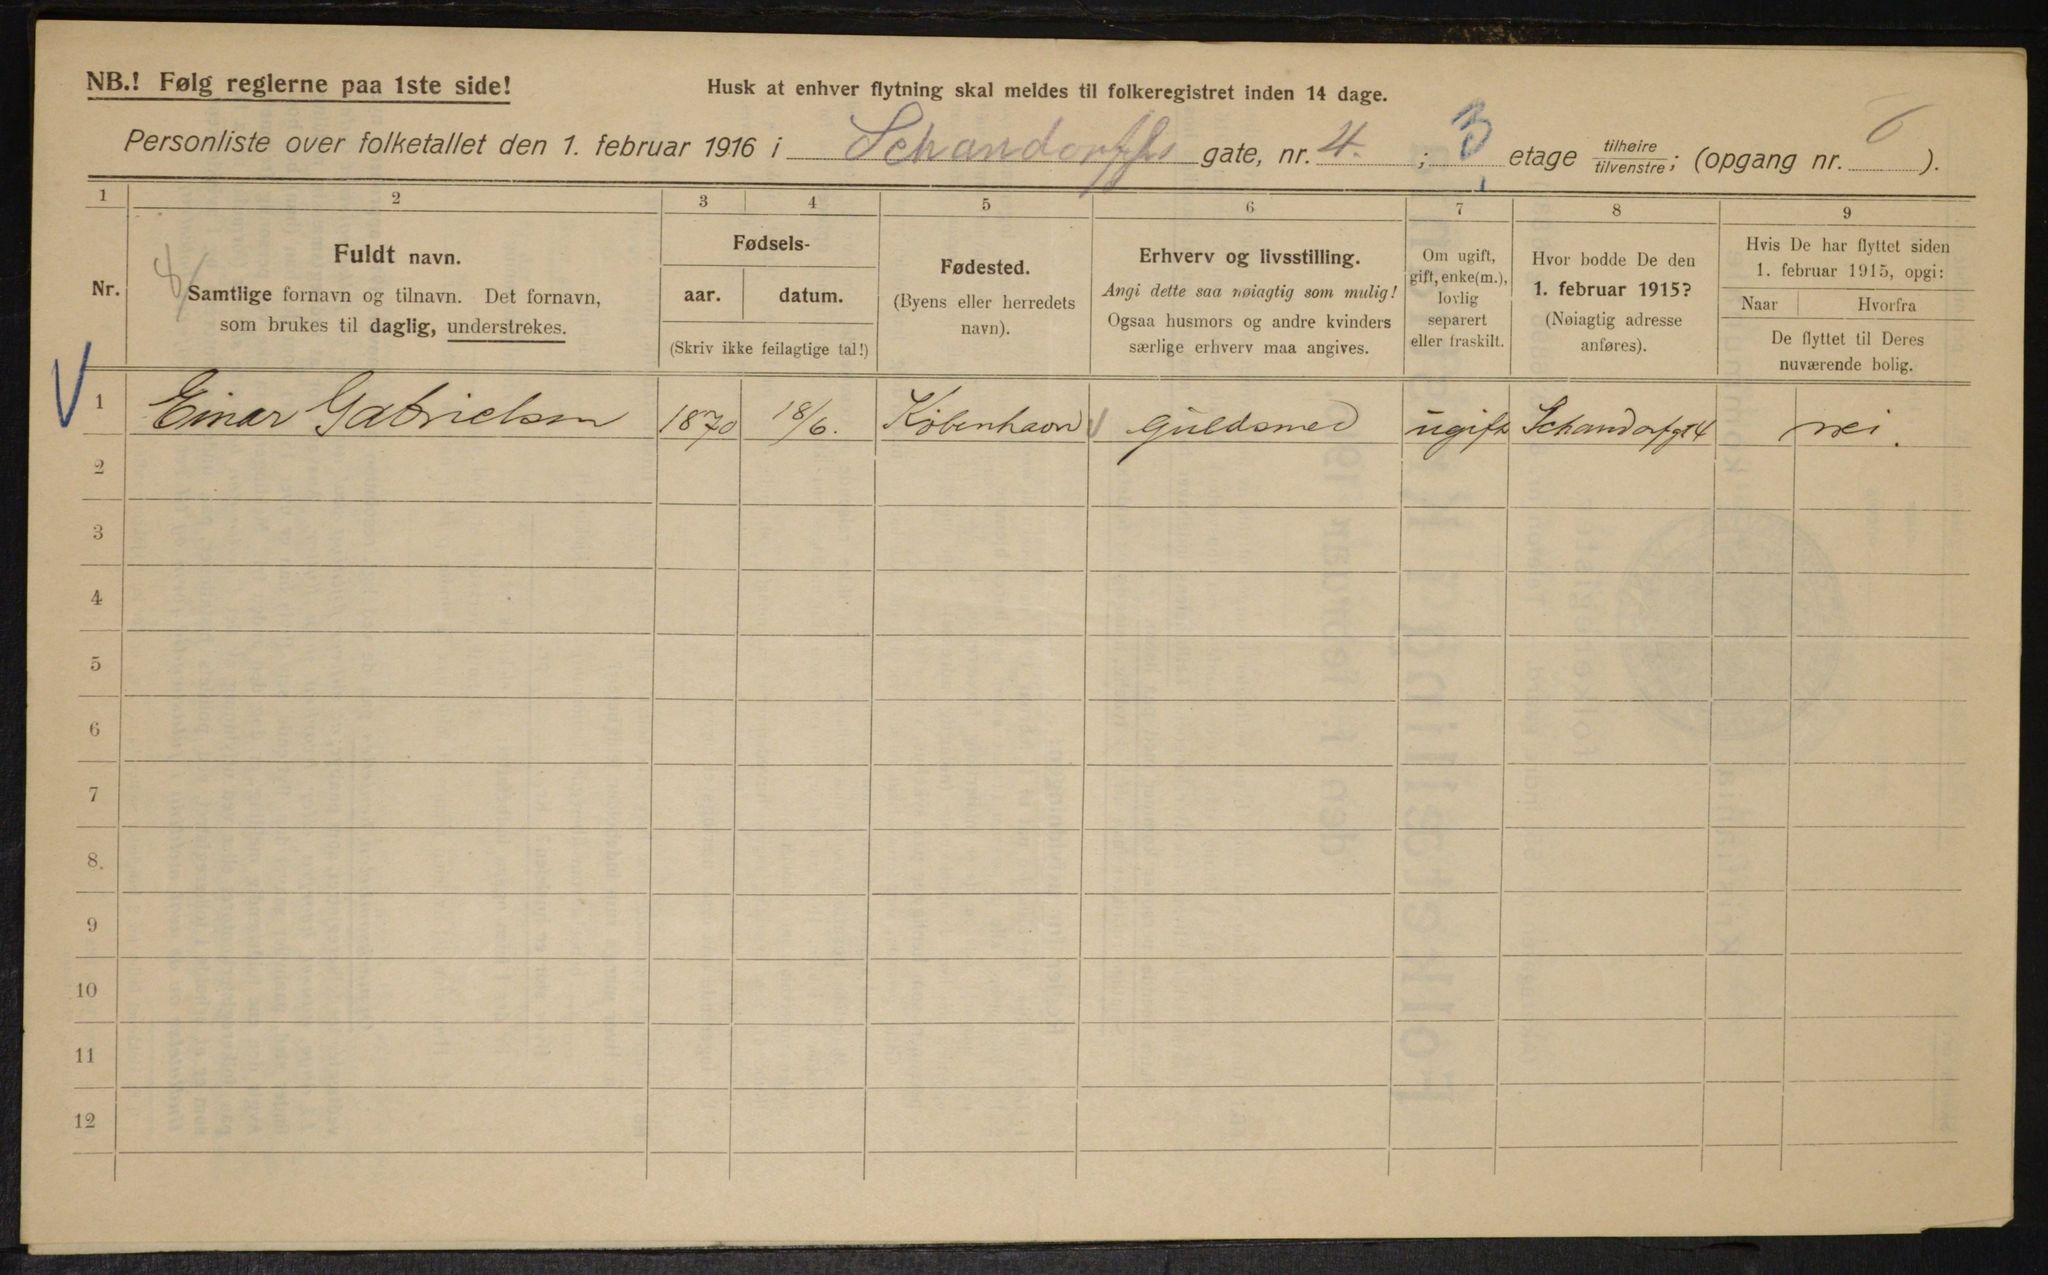 NB.! Følg reglerne paa 1ste side!
Husk at enhver flytning skal meldes til folkeregistret inden 14 dage.
Personliste over folketallet den 1. februar 1916 i Schandorffs gate, nr. 4. ; 3 etage tilhøire/tilvenstre; (opgang nr. ).
1 2 3 4 5 6 7 8 9
Nr.
Fuldt navn.
Samtlige fornavn og tilnavn. Det fornavn,
som brukes til daglig, understrekes.
Fødsels-
aar. datum.
(Skriv ikke feilagtige tal!)
Fødested.
(Byens eller herredets
navn).
Erhverv og livsstilling.
Angi dette saa nøiagtig som mulig!
Ogsaa husmors og andre kvinders
særlige erhverv maa angives.
Om ugift,
gift, enke(m.),
lovlig
separert
eller fraskilt.
Hvor bodde De den
1. februar 1915?
(Nøiagtig adresse
anføres).
Hvis De har flyttet siden
1. februar 1915, opgi:
Naar Hvorfra
De flyttet til Deres
nuværende bolig.
1 Einar Gabrielsen 1870 18/6. København Guldsmed ugift Schandorfgt 4 nei.
2
3
4
5
6
7
8.
9
10
11
12